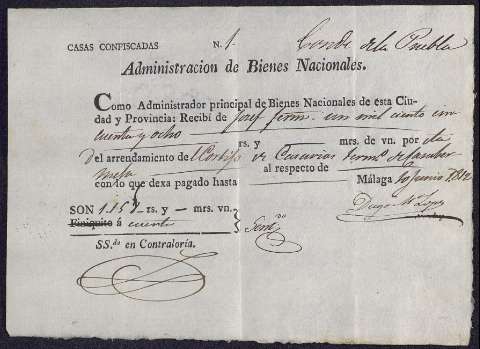 CASAS CONFISCADAS N. 1. Conde de la Puebla
Administracion de Bienes Nacionales.
Como Administrador principal de Bienes Nacionales de esta Ciu-
dad y Provincia: Recibí de Josef un mil ciento cin
cuenta y ocho rs. y mrs. de vn. por
del arrendamiento de
con lo que dexa pagado hasta al respecto de Málaga Junio 1812
SON 1.158 rs. y — mrs. vn.
Finiquito á cuenta
SS.da en Contraloría.
Diego M. Lopez